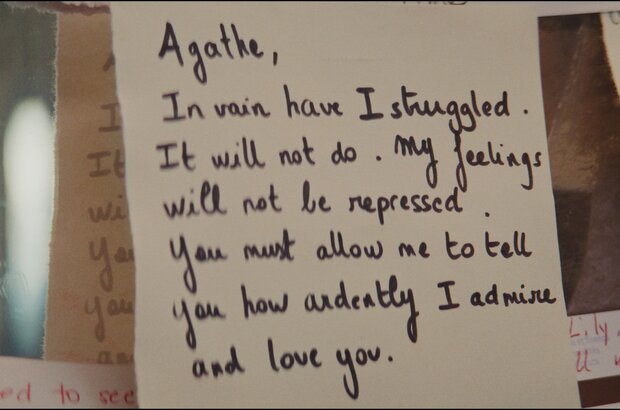 Agathe,
In vain have I struggled.
It will not do. My feelings
will not be repressed.
You must allow me to tell
you how ardently I admire
and love you.
ed to see
Lily